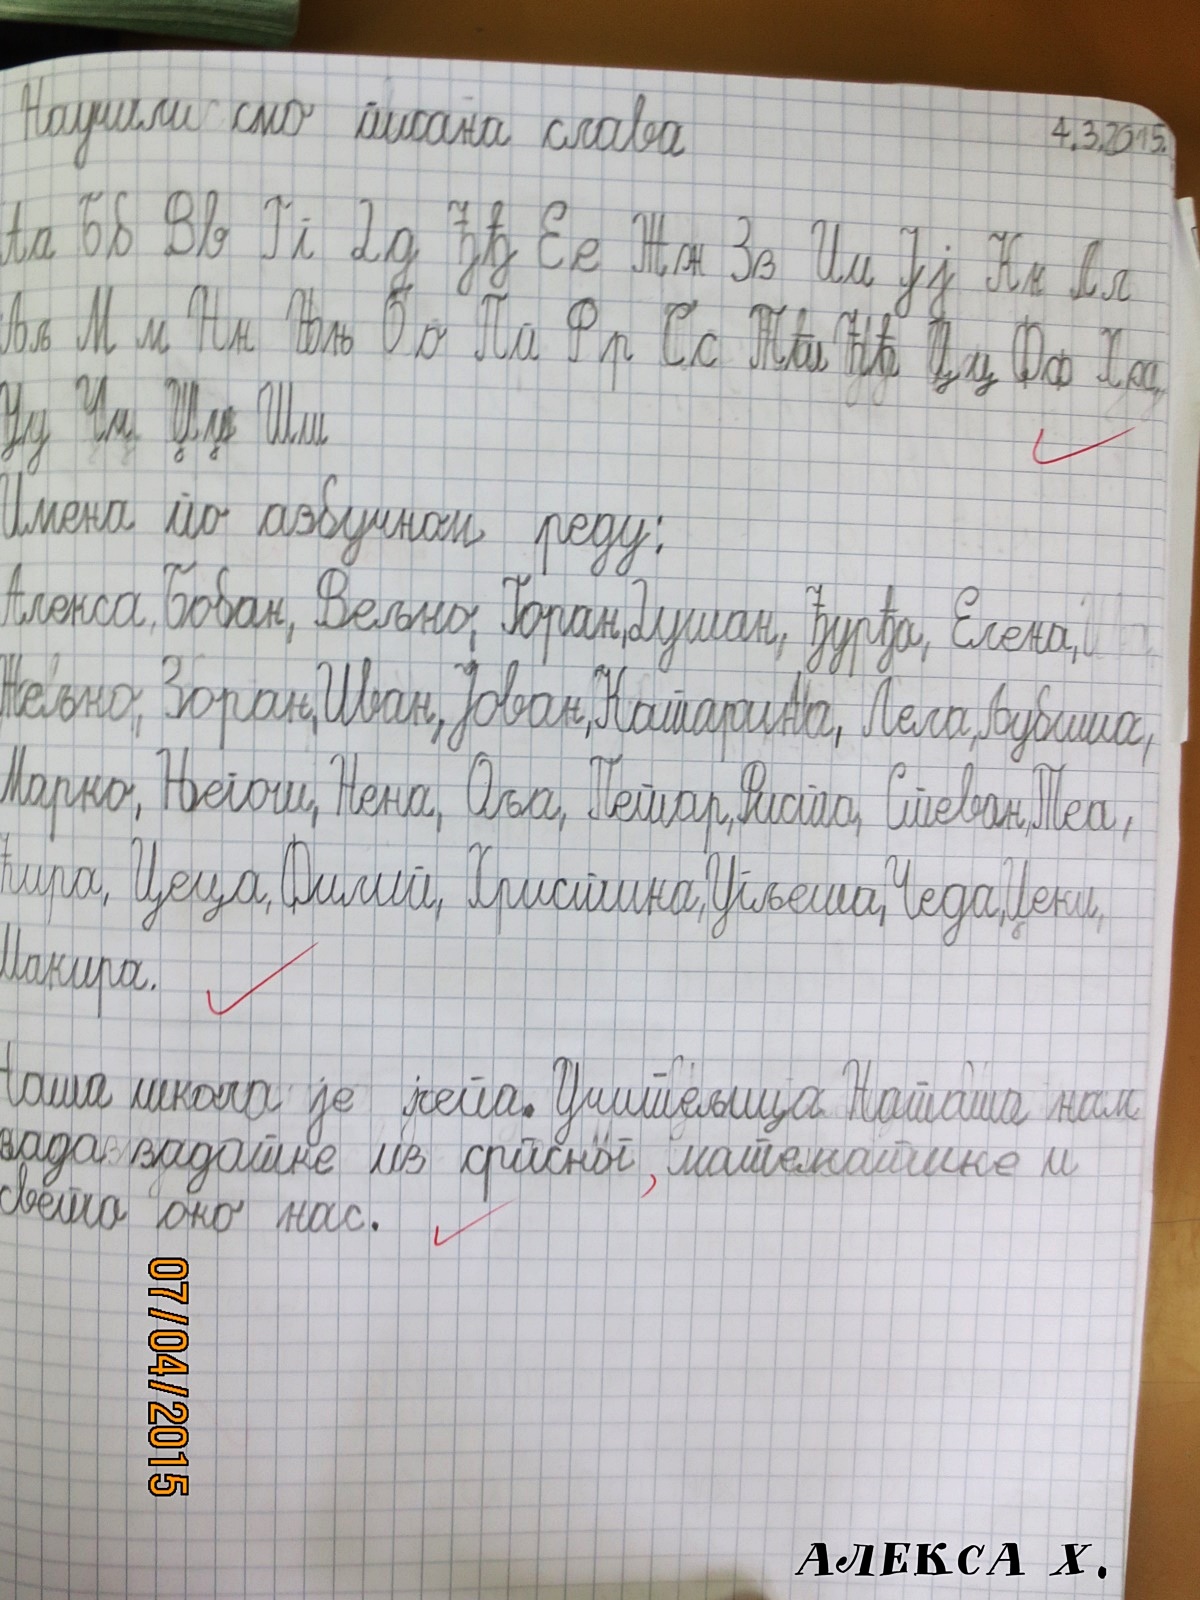 Научили смо писана слова
4.3.2015.
Аа Бб Вв Гг Дд Ђђ Ее Жж Зз Ии Јј Кк Лл
Љљ Мм Нн Њњ Оо Пп Рр Сс Тт Ћћ Цц Фф Хх
Уу Чч Џџ Шш
Имена по азбучном реду:
Алекса, Бобан, Вељко, Горан, Душан, Ђурђа, Елена,
Жељко, Зоран, Иван, Јован, Катарина, Лела, Љубиша,
Марко, Његош, Нена, Оља, Петар, Риста, Стеван, Теа,
Ћира, Цеца, Филип, Христина, Угљеша, Чеда, Џеки,
Шакира.
Наша школа је лепа. Учитељица Наташа нам
зада задатке из српског, математике и
света око нас.
07/04/2015
АЛЕКСА Х.